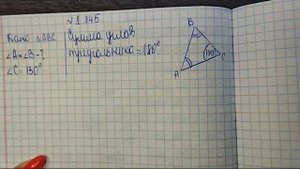 № 3.146
Дано △ABC
∠A=∠B-?
∠C=130°
Сумма углов
треугольника=180°
B
130°
A
C